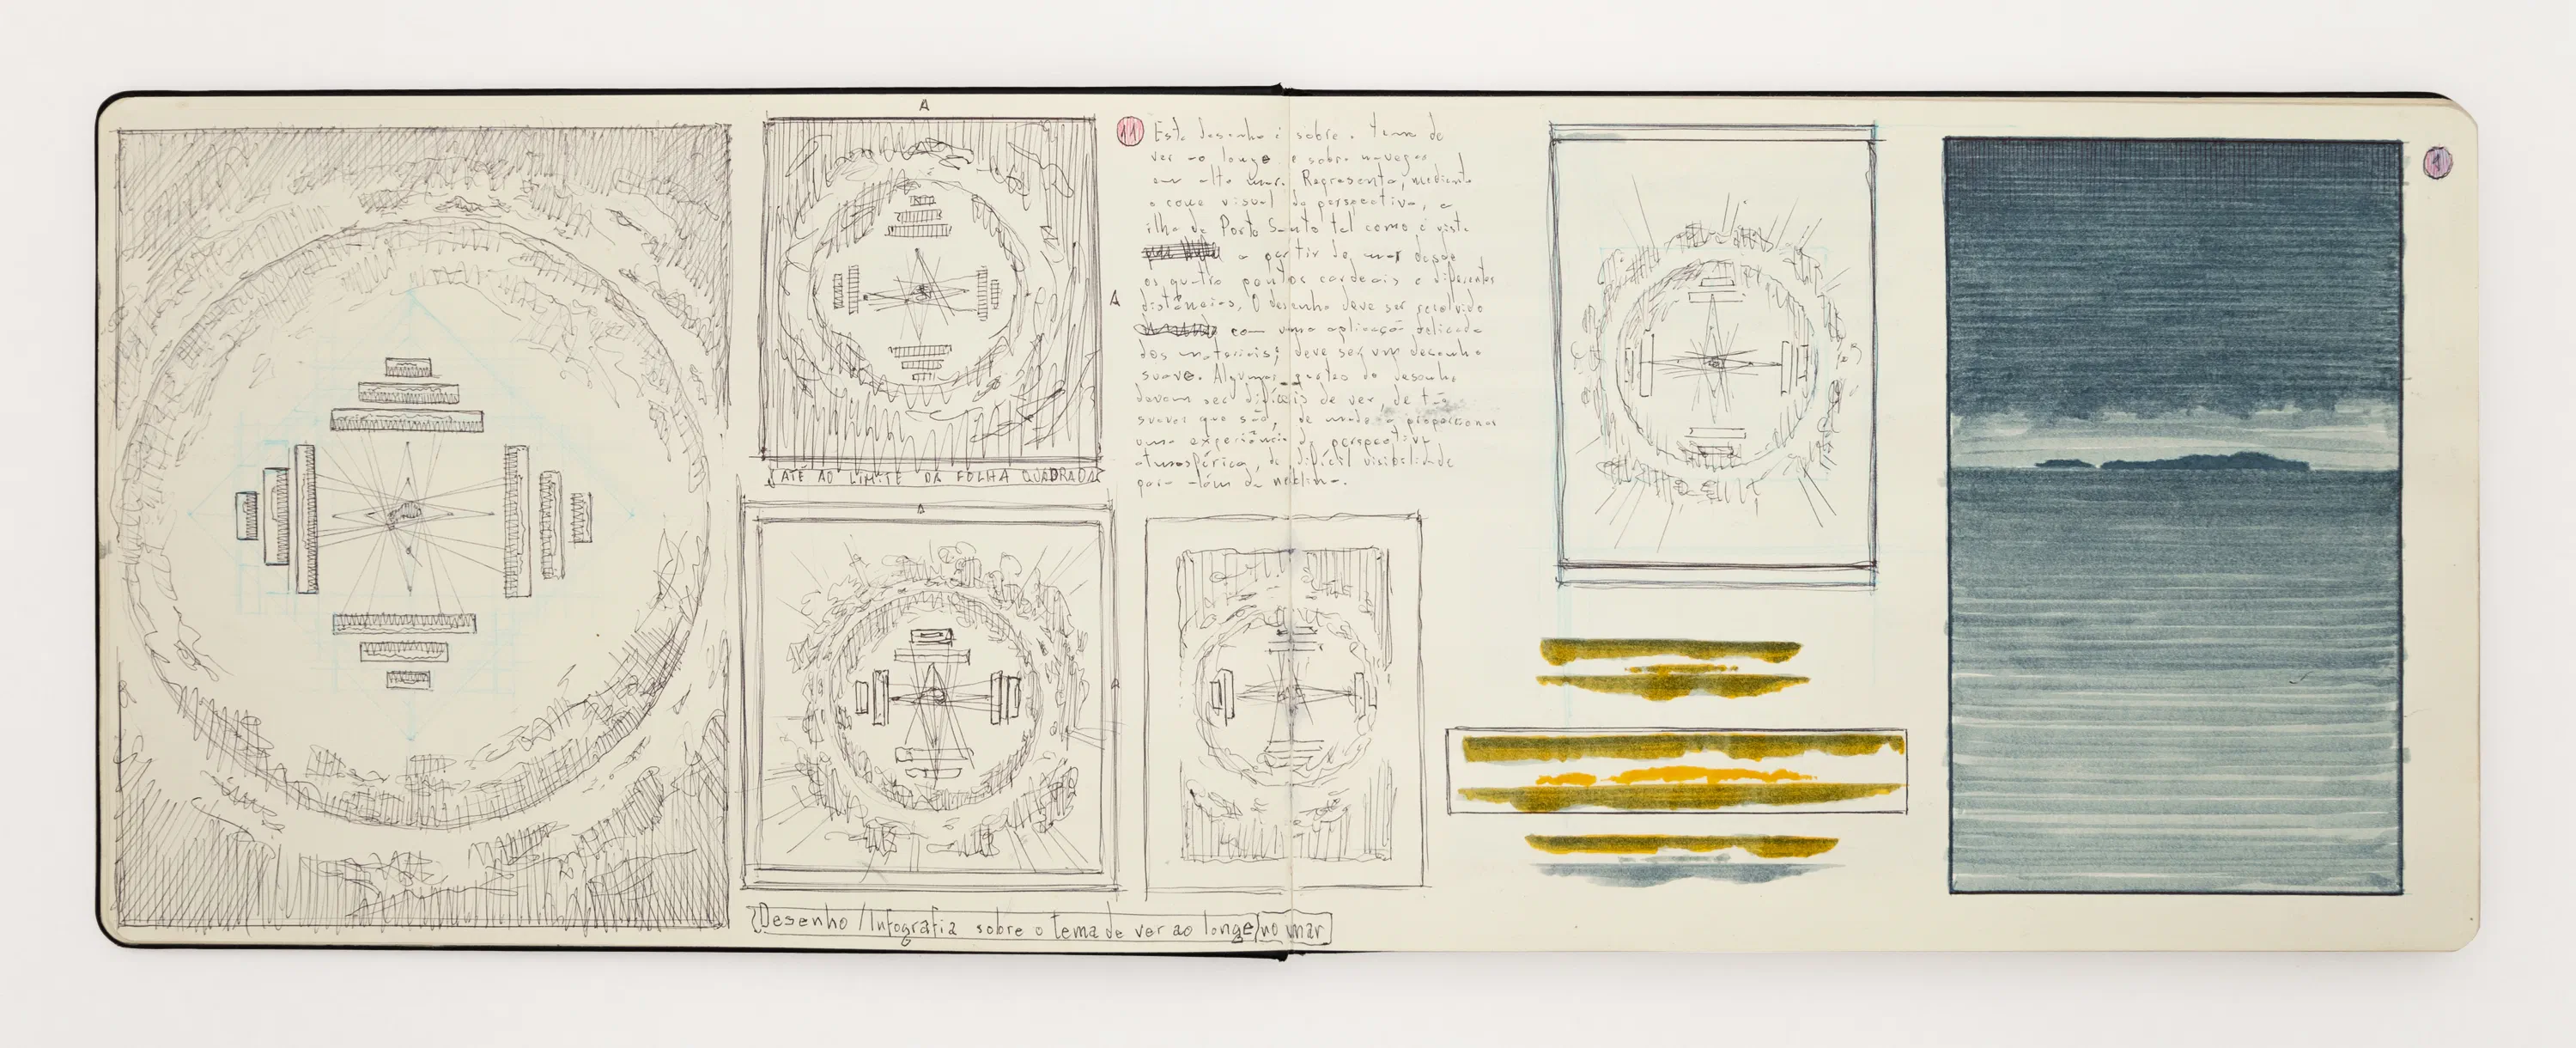 A
11
Este desenho é sobre o tema de
ver ao longe e sobre navegar
em alto mar. Representa, mediante
o cone visual da perspectiva, a
ilha de Porto Santo tal como é vista
a partir do mar desde
os quatro pontos cardeais e diferentes
distâncias. O desenho deve ser resolvido
com uma aplicação delicada
dos materiais; deve ser um desenho
suave. Algumas partes do desenho
devem ser difíceis de ver, de tão
suaves que são, de modo a proporcionar
uma experiência da perspectiva
atmosférica, de difícil visibilidade
para além da neblina.
A
ATÉ AO LIMITE DA FOLHA QUADRADA
A
A
Desenho / Infografia sobre o tema de ver ao longe/no mar